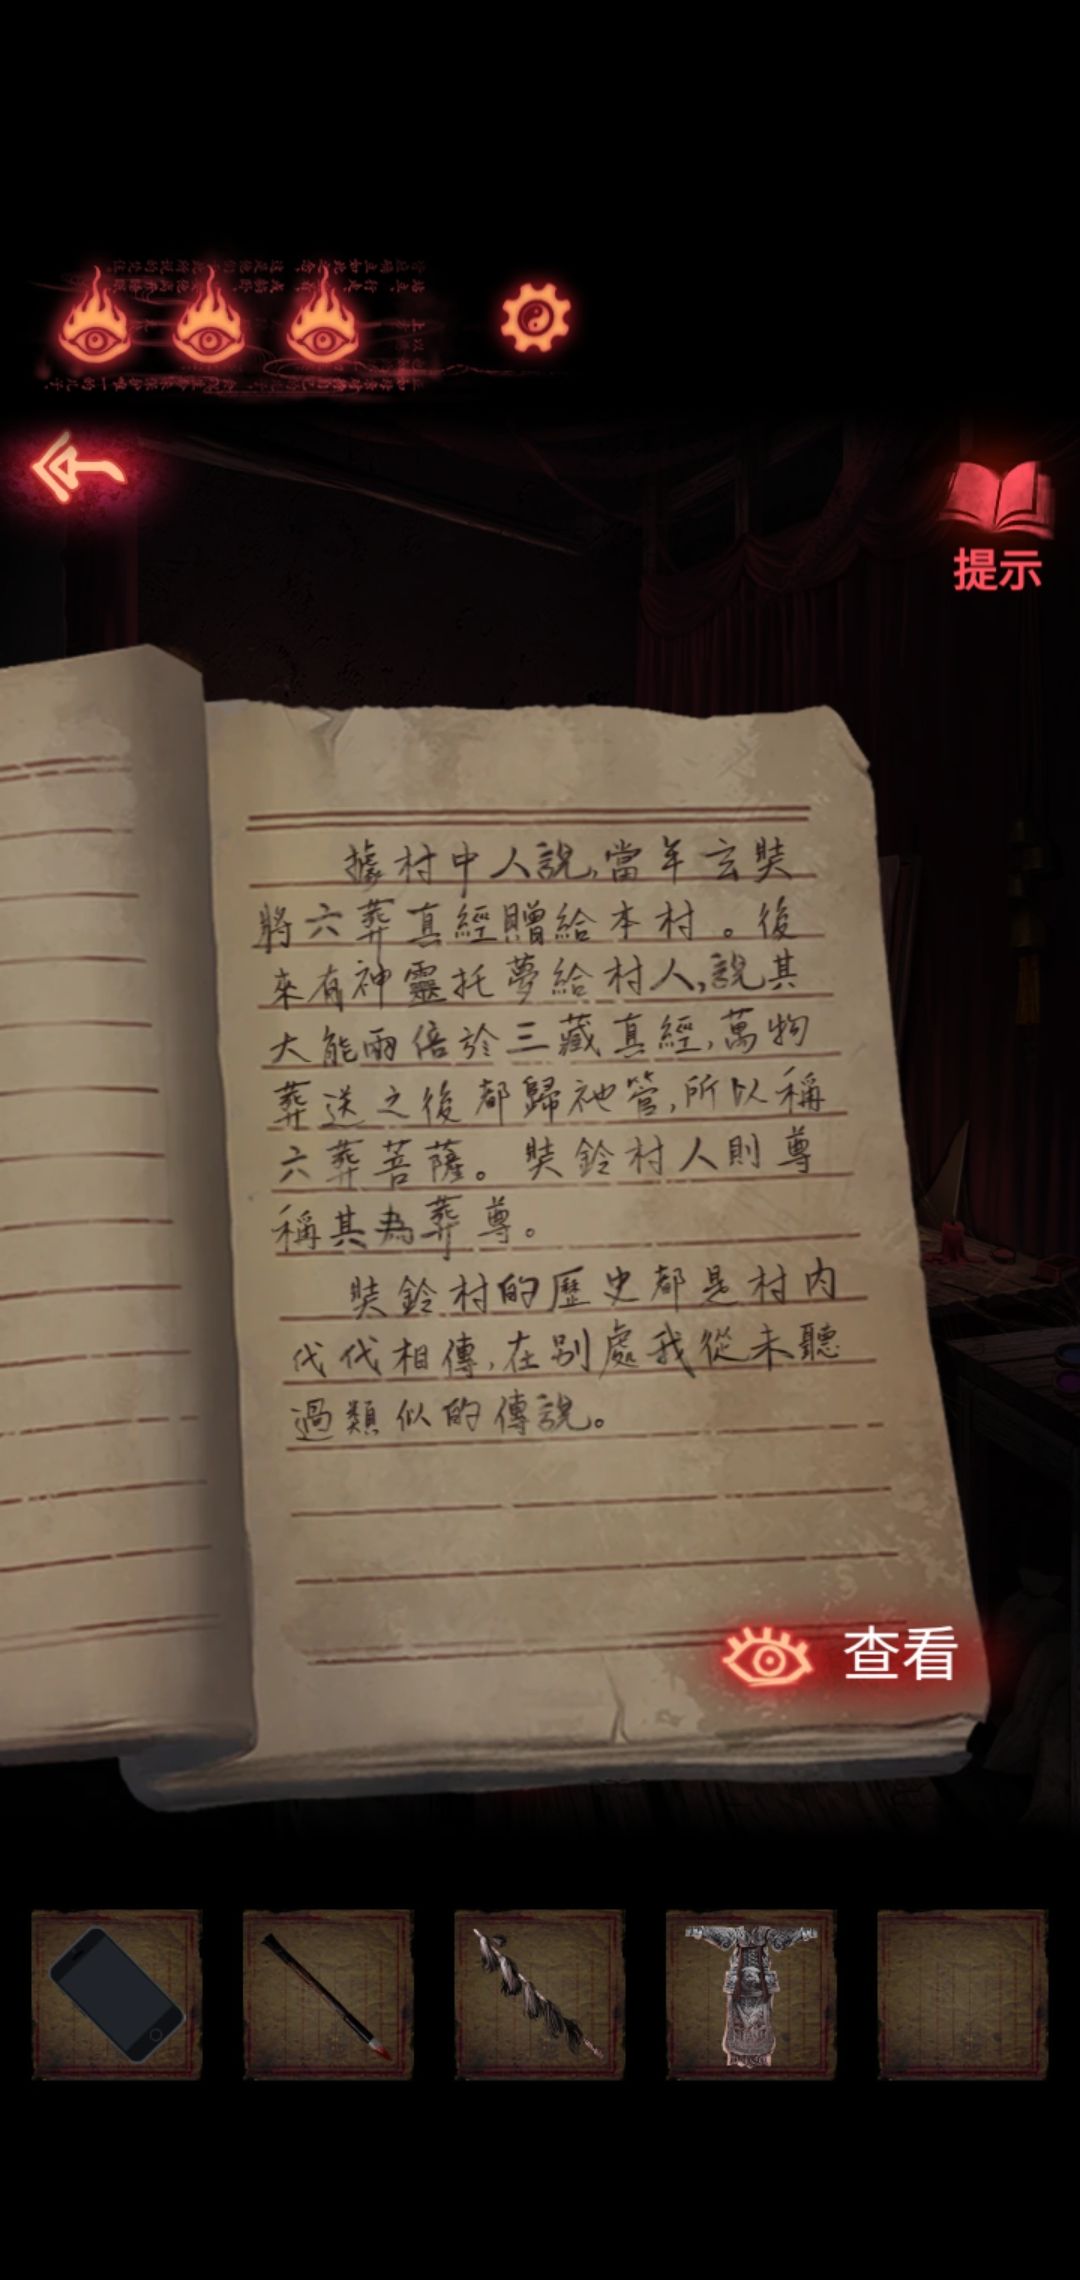 提示
據村中人說,當年玄奘
將六葬真經贈給本村。後
來有神靈托夢給村人,說其
大能兩倍於三藏真經,萬物
葬送之後都歸祂管,所以稱
六葬菩薩。奘鈴村人則尊
稱其為葬尊。
奘鈴村的歷史都是村內
代代相傳,在別處我從未聽
過類似的傳說。
查看